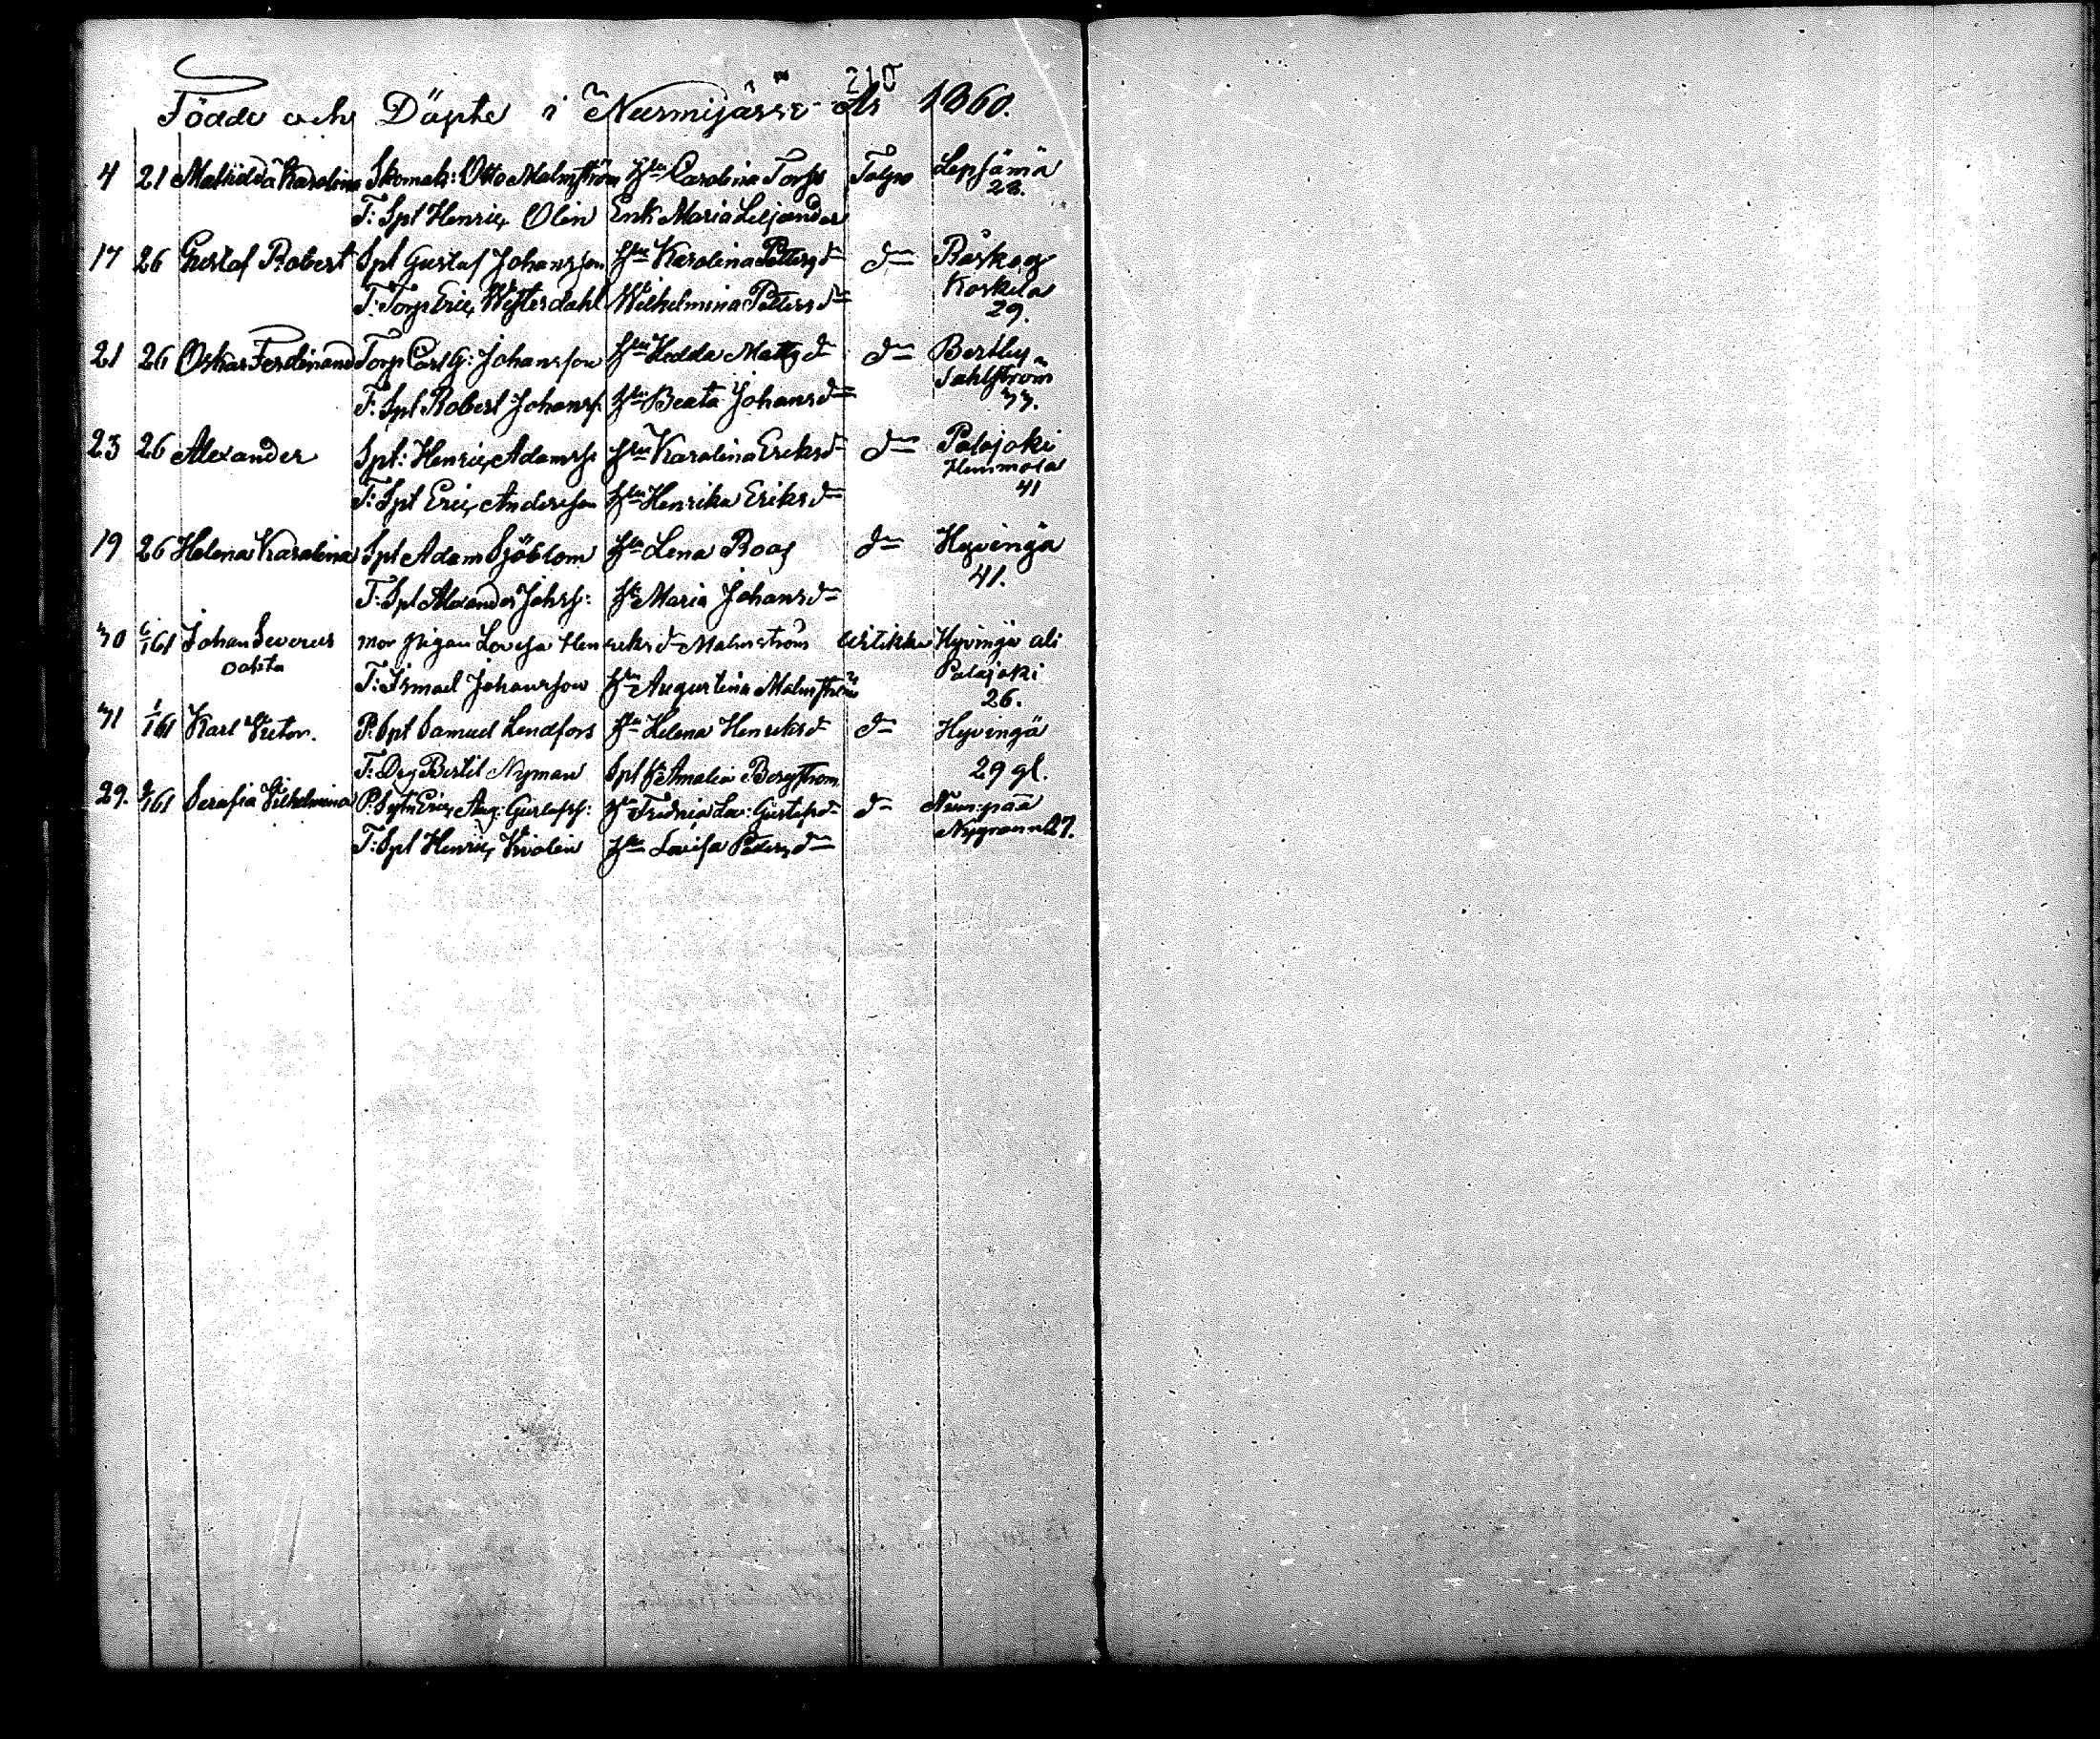 210
Födde och Döpte i Nurmijärvi År 1860.
4 21 Mathilda Karolina Skomak: Otto Malmström Hu Carolina Torps Talpo Lepsämä
28.
T: Spt Henric Olin Enk Maria Liljander
17 26 Gustaf Robert Spt Gustaf Johansson Hu Karolina Petters dr do Råskog
Koskela
T: Torp Eric Westerdahl Wilhelmina Petters dr
29.
21 26 Oskar Ferdinand Torp Carl G: Johansson Hu Hedda Matts dr do Bertby
Sahlström
T: Spt Robert Johanss Hu Beata Johans dr
33.
23 26 Alexander Spt: Henric Adamss Hu Karolina Eriks dr do Palojoki
Heinmola
T: Spt Eric Andersson Hu Henrika Eriks dr
41
19 26 Helena Karolina Spt Adam Sjöblom Hu Lena Boas do Hyvingä
41.
T: Spt Alexander Johss: Hu Maria Johans dr
30 6/1 61 Johan Severus mor pigan Lovisa Henriks dr Malmström Hyvingä ali
oäkta Palojoki
T: Ismael Johansson Hu Augustina Malmström
26.
31 1/1 61 Karl Victor. P. Spt Samuel Lindfors Hu Helena Henriks dr do Hyvingä
T: Drg Bertil Nyman Spt h Amalia Bergström
29 gl.
29. /1 61 Serafia Vilhelmina P. Sytn Eric Aug: Gustafss: Hu Fredrica Lov: Gustafs dr do Num:pää
Nygrann 27.
T: Spt Henric Violin Hu Lovisa Peters dr